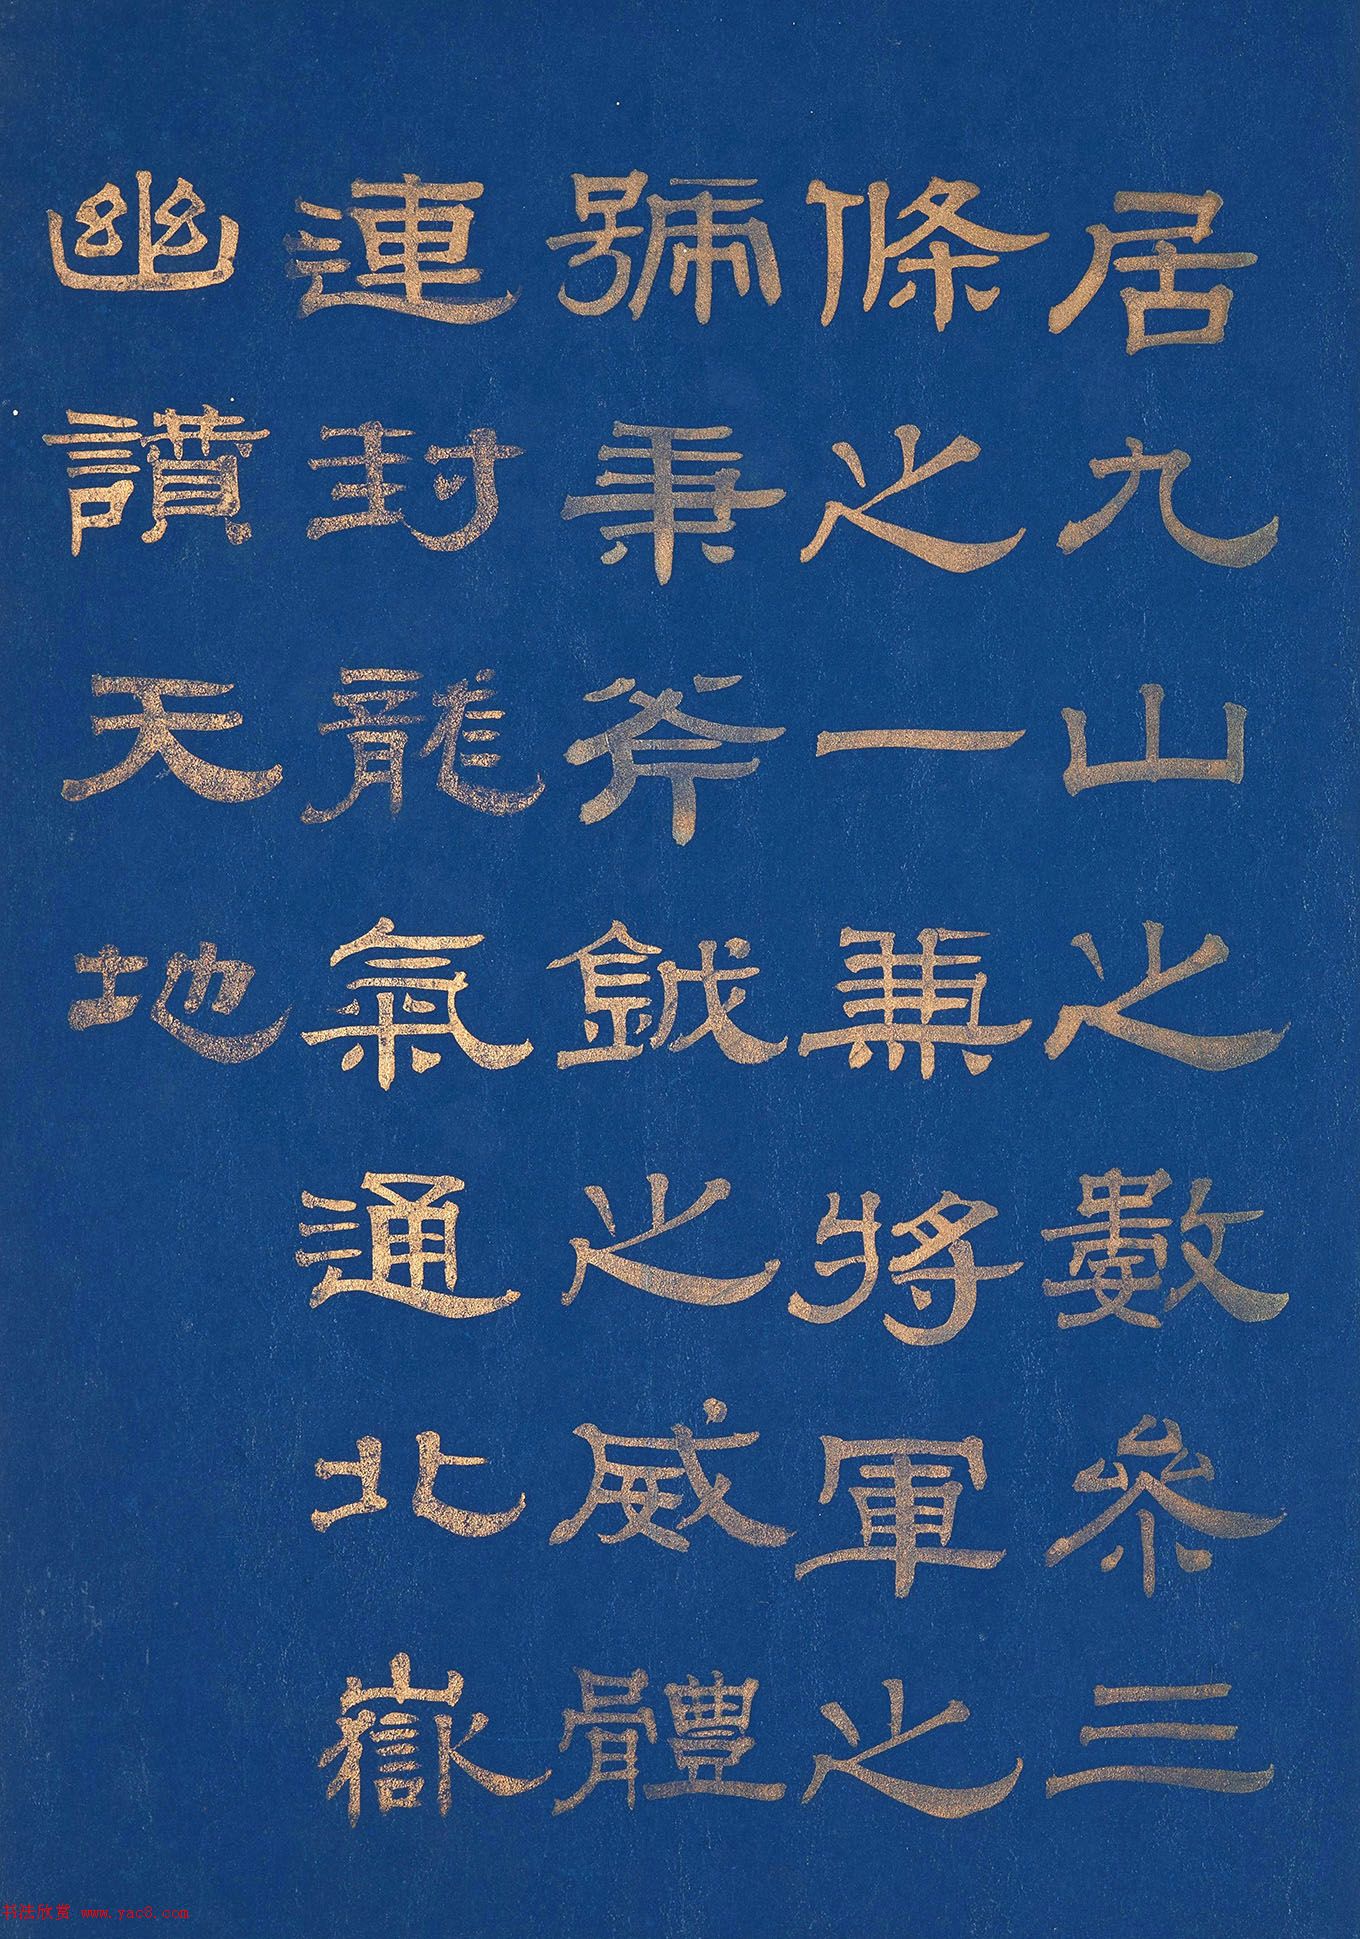 居九山之數參三
條之一兼將軍之
號秉斧鉞之威體
連封龍氣通北嶽
幽讃天地
书法欣赏 www.yac8.com